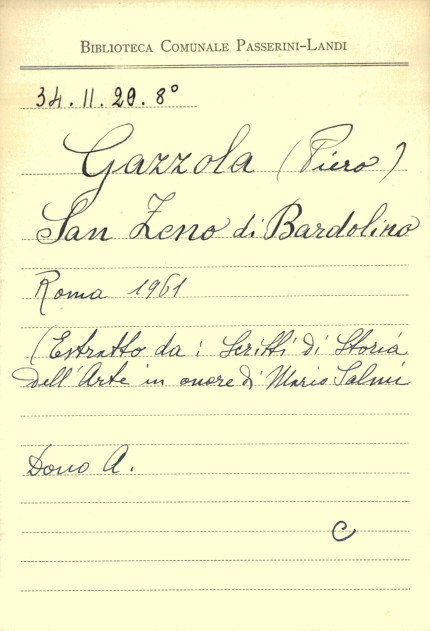 BIBLIOTECA COMUNALE PASSERINI-LANDI
34.11.20.8°
Gazzola (Piero)
San Zeno di Bardolino
Roma 1961
(Estratto da: Scritti di Storia
dell'Arte in onore di Mario Salmi
Dono A.
C